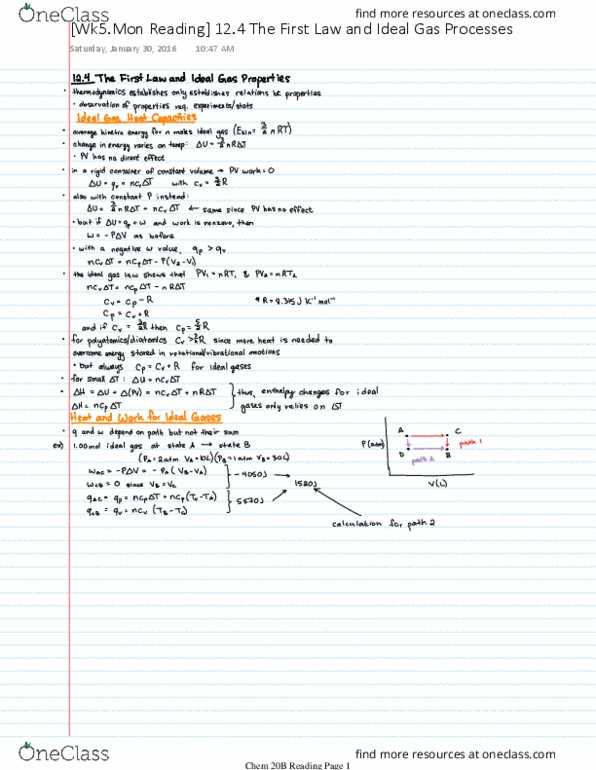 OneClass
find more resources at oneclass.com
[Wk5.Mon Reading] 12.4 The First Law and Ideal Gas Processes
Saturday, January 30, 2016 10:47 AM
12.4 The First Law and Ideal Gas Properties
• thermodynamics establishes only establishes relations be properties
• observation of properties req. experiments/stats
Ideal Gas Heat Capacities
• average kinetic energy for n moles ideal gas (Ekin = 3/2 nRT)
• change in energy varies on temp: ΔU = 3/2 nRΔT
• PV has no direct effect
• in a rigid container of constant volume → PV work = 0
ΔU = qv = ncvΔT with cv = 3/2 R
• also with constant P instead:
ΔU = 3/2 nRΔT = ncvΔT ← same since PV has no effect
• but if ΔU = qp + w and work is nonzero, then
w = -PΔV as before
• with a negative w value, qp > qv
ncvΔT = ncpΔT - P(V2 - V1)
• the ideal gas law shows that PV1 = nRT1 & PV2 = nRT2
ncvΔT = ncpΔT - nRΔT
cv = cp - R * R = 8.315 J K⁻¹ mol⁻¹
cp = cv + R
and if cv = 3/2 R then cp = 5/2 R
• for polyatomics/diatomics cv > 3/2 R since more heat is needed to
overcome energy stored in rotational/vibrational motions
• but always cp = cv + R for ideal gases
• for small ΔT: ΔU = ncvΔT
• ΔH = ΔU + Δ(PV) = ncvΔT + nRΔT } thus, enthalpy changes for ideal
ΔH = ncpΔT gases only relies on ΔT
Heat and Work for Ideal Gases
• q and w depend on path but not their sum
ex) 1.00 mol ideal gas at state A → state B
(PA = 2 atm VA = 10L) (PB = 1 atm VB = 30L)
wAC = -PΔV = -PA(VB - VA) } -4050J
wCB = 0 since VB = VC
1520J
qAC = qp = ncpΔT = ncp(TC - TA) } 5570J
qCB = qv = ncv(TB - TC)
calculation for path 2
A C
P(atm) path 1
D B
path 2
V(L)
OneClass
find more resources at oneclass.com
Chem 20B Reading Page 1